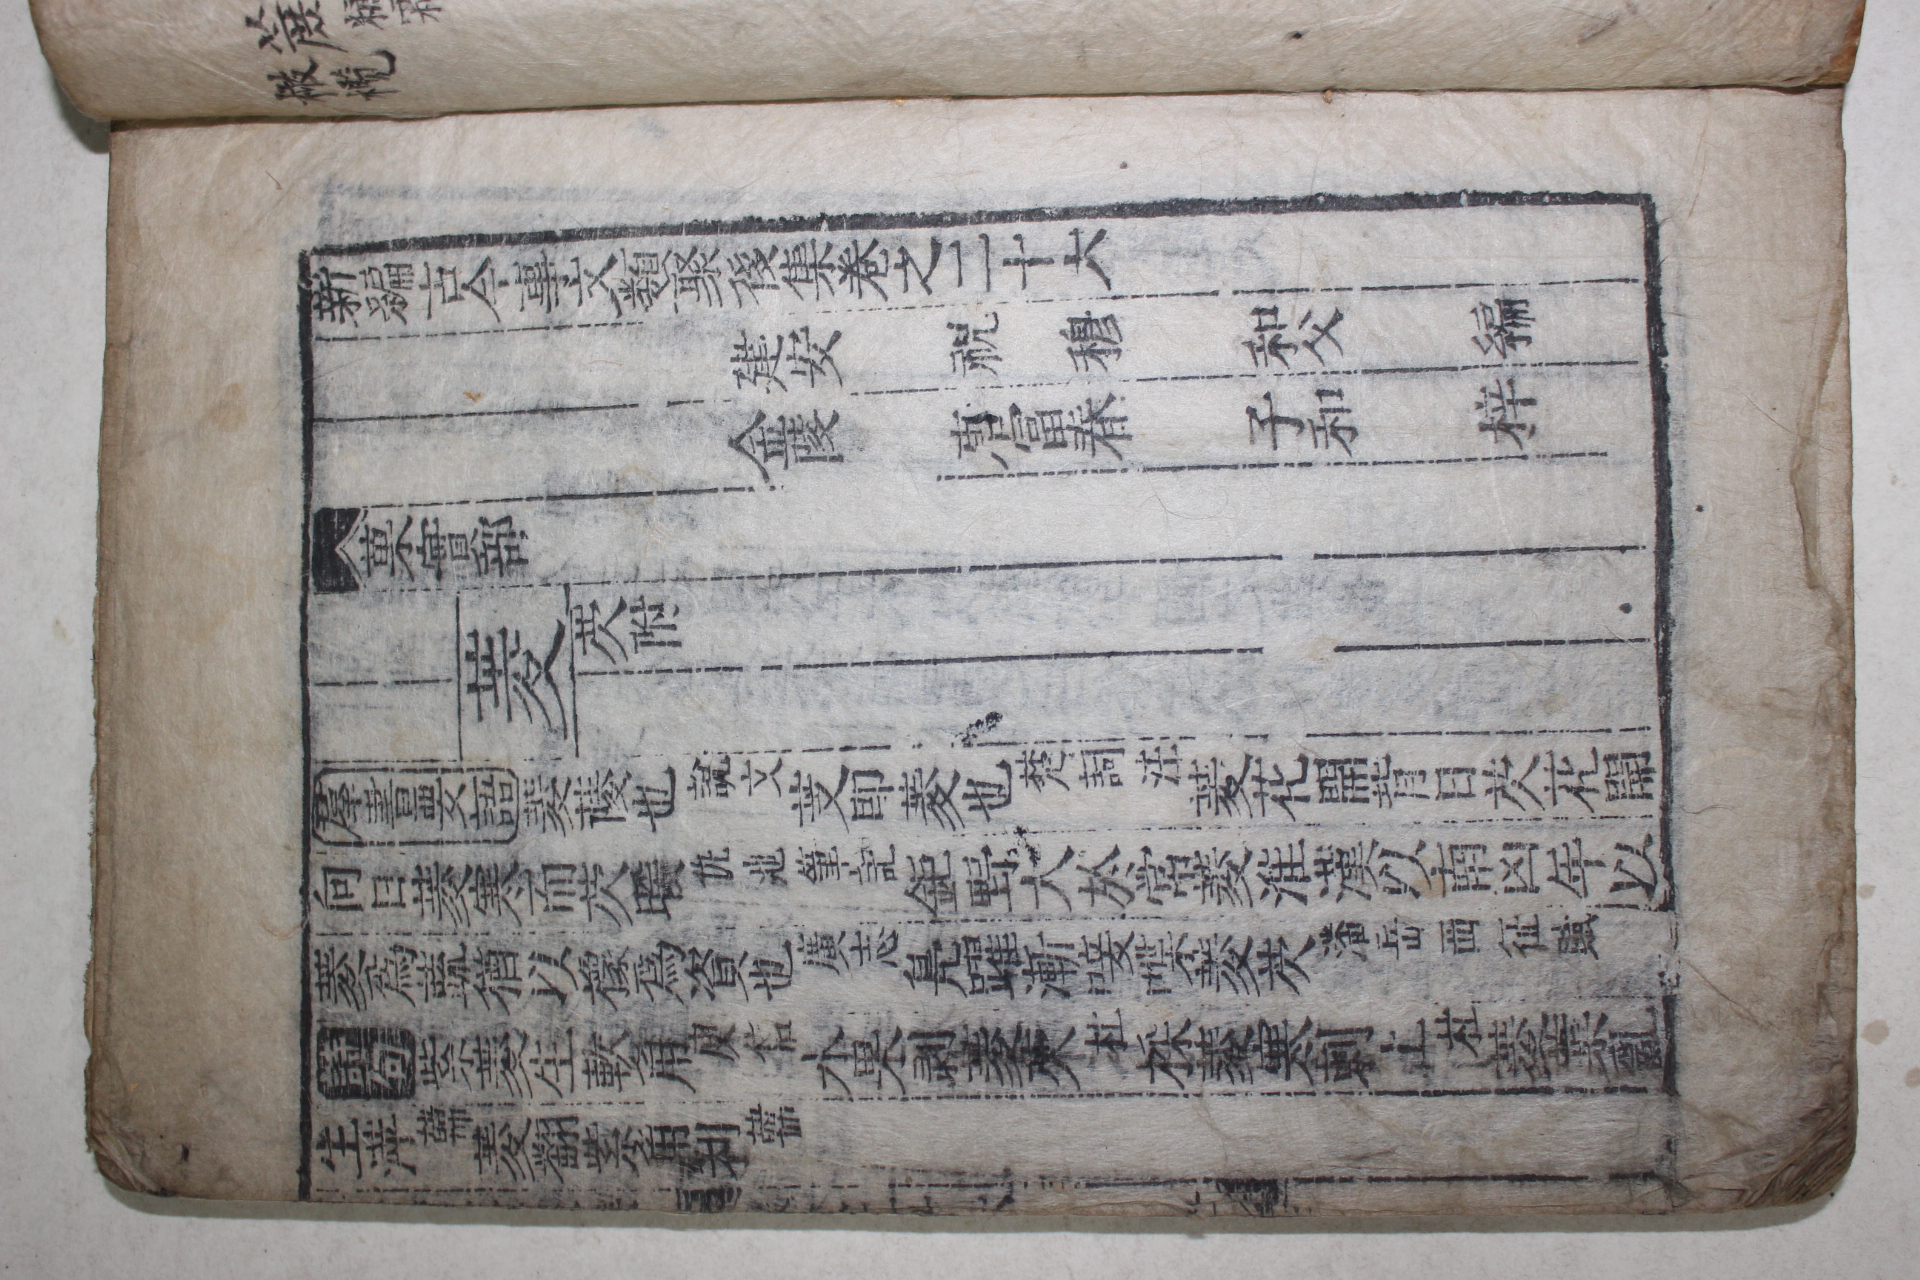 蔗 糖霜
橄欖
新編古今事文類聚後集卷之二十六
建安 祝穆 和父 編
金陵 唐富春 子和 梓
菓實部
菱
芡附
羣書要語 菱薐也 說文 芰即菱也 楚詞注 菱花開背日芡花開
向日菱寒而芡暖 仇池筆記 鉅野大於常菱淮漢以南凶年以
菱爲蔬猶以橡爲資也 廣志 鳧躍漸唼喋菱芡 潘岳西征賦
詩句 紫菱生軟角 庾信 水果剥菱芡 杜 採菱寒刺上 杜 菱葉亂
生萍 韓 菱翻紫角利 韓